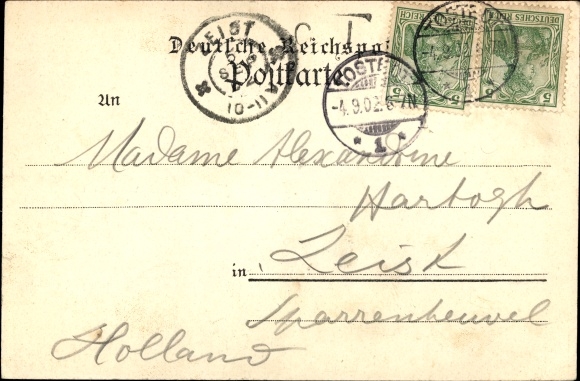 Deutsche Reichspost
Postkarte
ZEIST
10-11
ROSTOCK
-4.9.02.6-7N
* 1 *
DEUTSCHES REICH
5 5
DEUTSCHES REICH
5 5
An
Madame Alexandrine
Hartogh
in Zeist
Sparrenheuvel
Holland